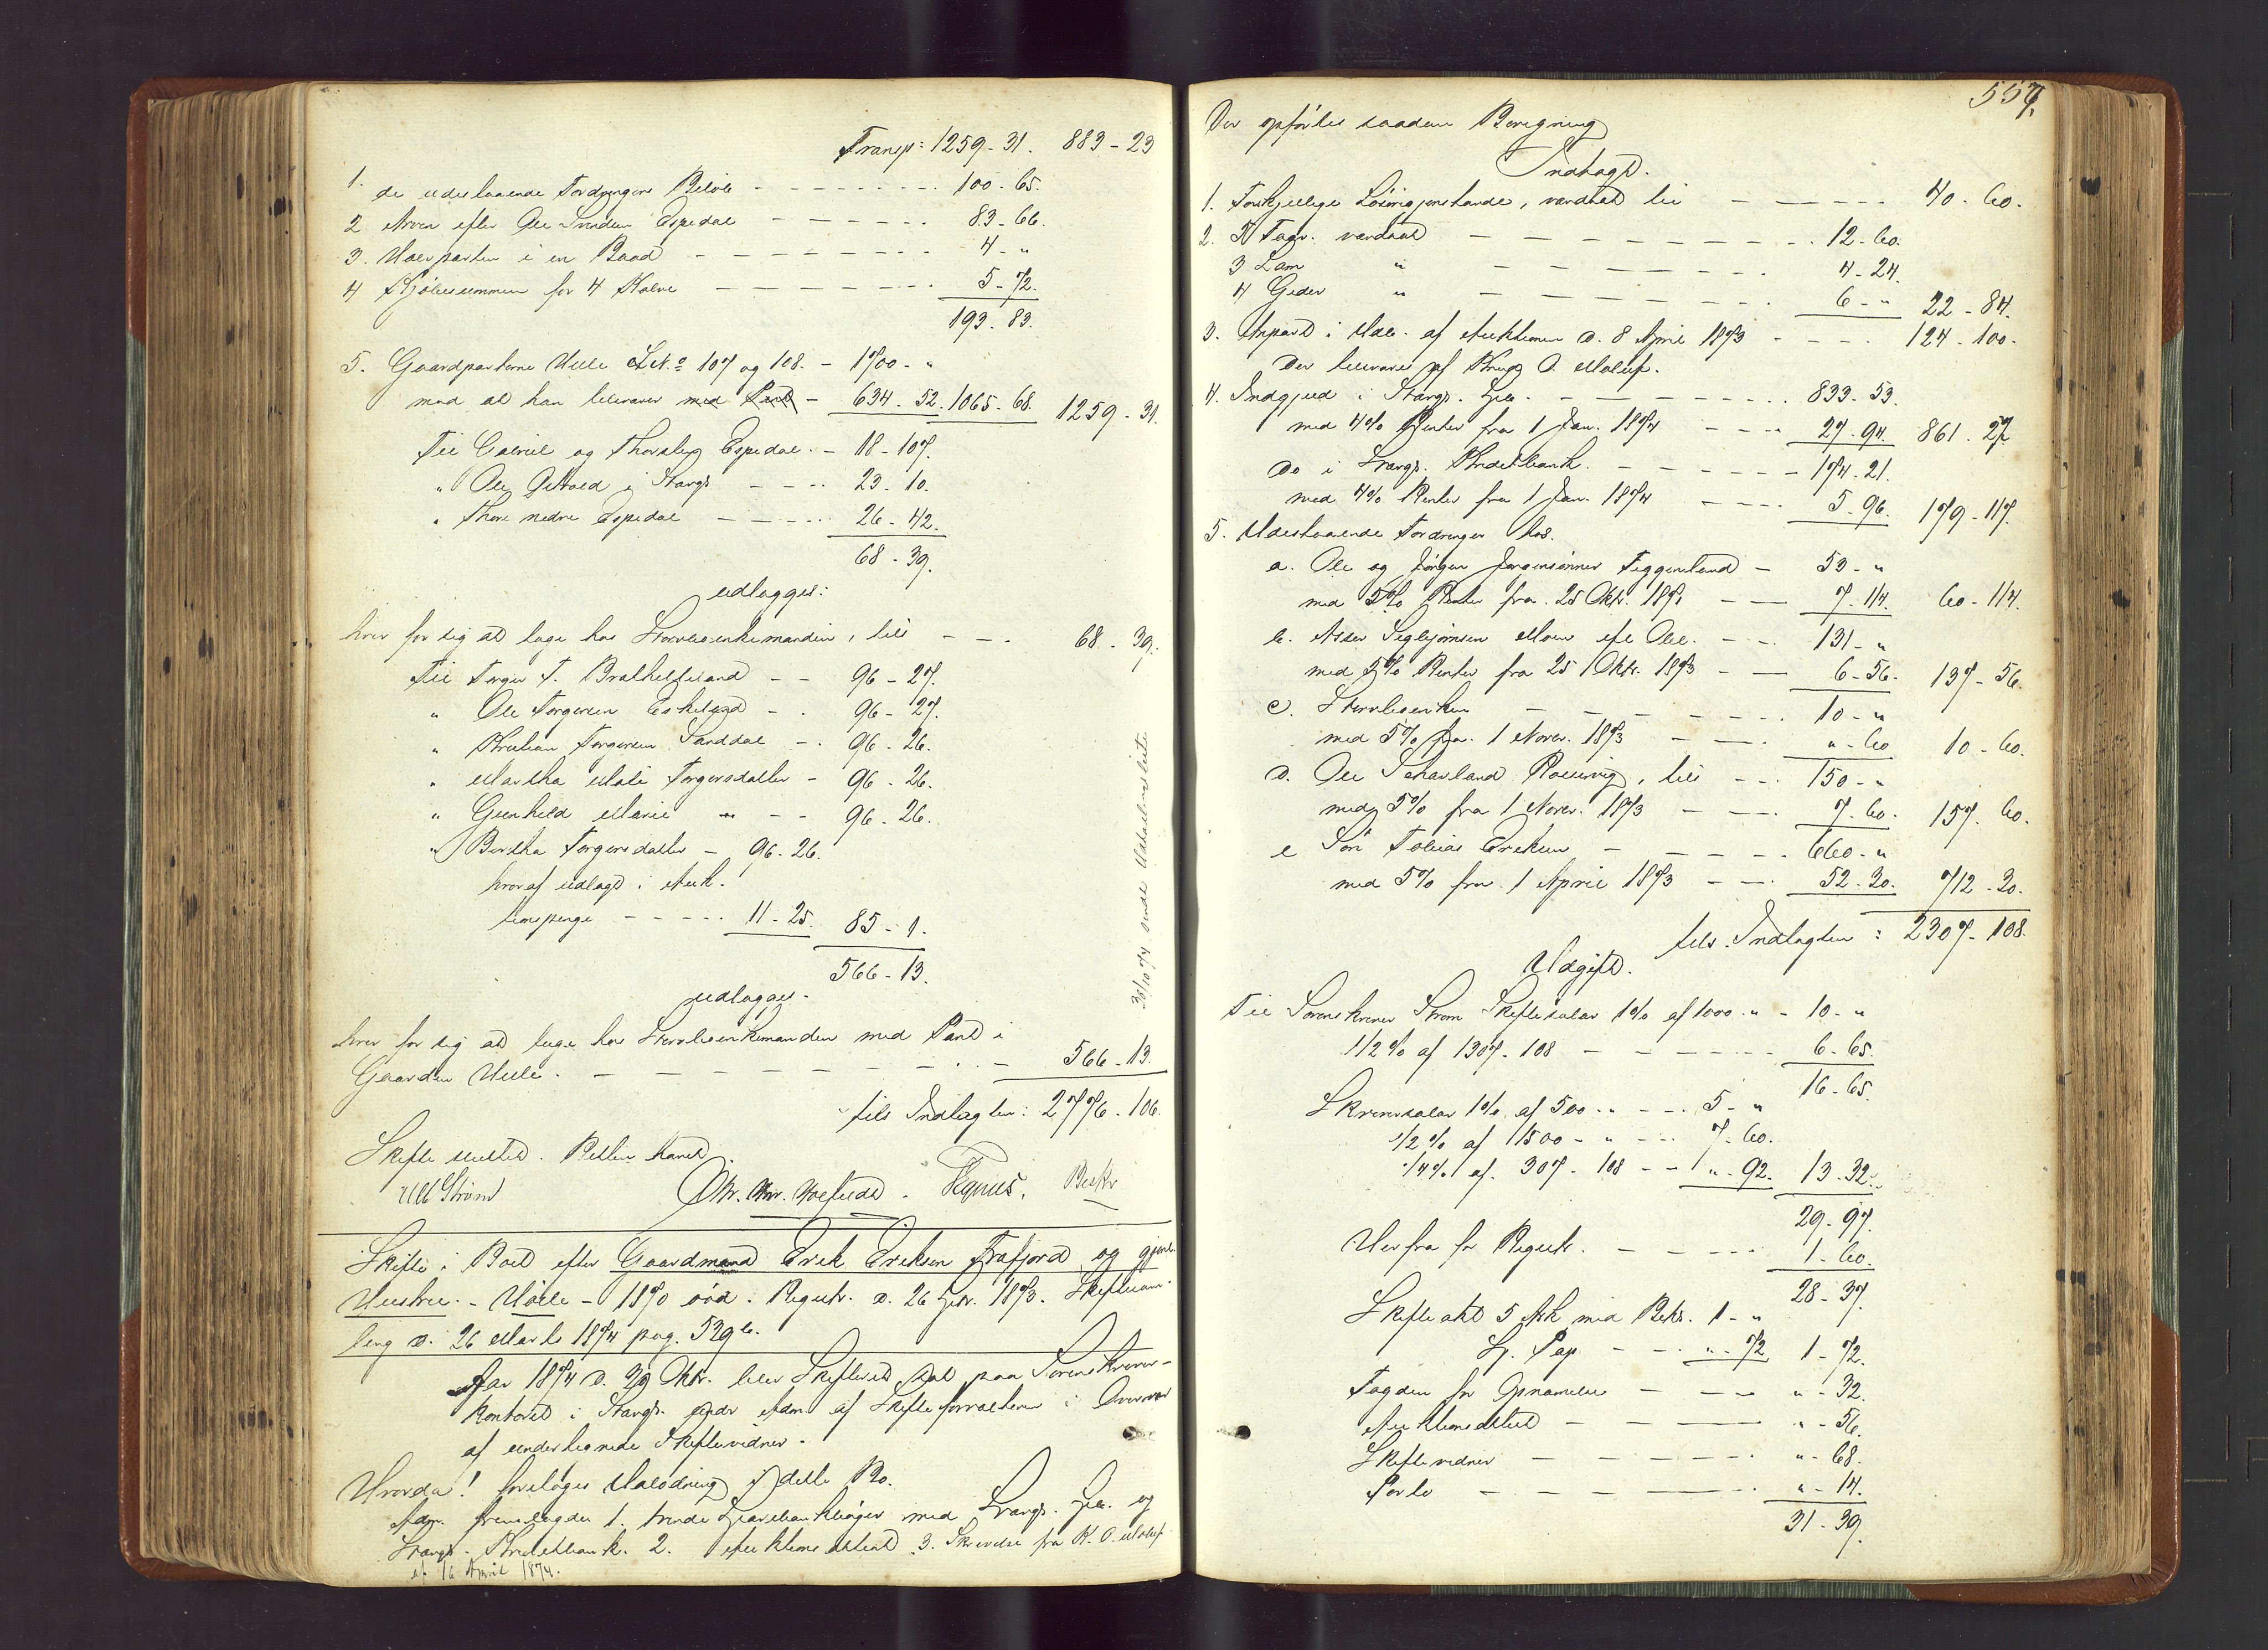 Transp: 1259-31. 883-23
1. de udestaaende Fordringers Beløb - 100-65.
2 Arven efter Ole Espedal - 83-66.
3. Halvparten i en Baad - 4-"
4 Kjøbesummen for 4 Kalve - 5-72.
193-83.
5. Gaardparterne Helle L.No 107 og 108. - 1700-"
mod at han tilsvarer - 634-52. 1065-68. 1259-31.
Til Gabriel og Espedal. - 18-107.
" Ole i Stavgr - 23-10.
" Thore nedre Espedal - 26-42.
68-39.
udlægges:
hver for sig at tage hos Stervboenkemanden, tils - 68-39.
Til Torger T. Bratheltveland - 96-27.
" Ole Torgersen Eskeland - 96-27.
" Kristian Torgersen Sanddal - 96-26.
" Martha Mali Torgersdatter - 96-26.
" Gunhild Marie " - 96-26.
" Bertha Torgersdatter - 96-26.
hvoraf udlagt i Auk-
tionspenge - 11-25. 85-1.
566-13.
udlægges.
hver for sig at tage hos Stervboenkemanden med Pant i
Gaarden Helle. - 566-13.
tils Indtægten: 2776-106.
30/10 74 sendt Udlodningsliste
Skifte sluttet. Retten hævet.
Strøm
Skifte i Boet efter Gaardmand Erik Eriksen Frafjord og gjenl.
Hustru. - Helle - 1870 død. Registr. d. 26 1873. Skiftesam-
ling d. 26 Marts 1874 pag. 539 b.
Aar 1874 d. 29 Oktr. blev Skifteret sat paa Sorenskriver-
kontoret i Stavgr. adm. af Skifteforvalteren i Overvær
af undertegnede Skiftevidner.
Hvorda! foretoges Udlodning i dette Bo.
Adm. fremlagde 1. tvende med Stavgr. og
Stavgr. Kreditbank. 2. Auktions 3. Skrivelse fra K. O. Molaug
af 16 April 1874.
557.
Der opførtes saadan Beregning
Indtægt.
1. Forskjellige Løsøregjenstande, værdsat til - 40-60.
2. 7 Fagr. værdsat - 12-60.
3 Lam " - 4-24.
4 Geder " - 6-" 22-84.
3. Anpart i Udb. af Auktionen d. 8 April 1873 - 124-100.
Der tilsvares af
4. Indskud i Stavgr. - 833-53.
med 4% Renter fra 1 Jan. 1874 - 27-94. 861-27.
Do i Stavgr. Kreditbank. - 174-21.
med 4% Renter fra 1 Jan. 1874 - 5-96. 179-117.
5. Udestaaende Fordringer hos.
a. Ole og Jørgen Jørgensønner Teggenland - 53-"
med 5% Renter fra 25 Oktr. 1871 - 7-114. 60-114.
b. Asser - 131-"
med 5% Renter fra 25 Oktr. 1873 - 6-56. 137-56.
c. Stervboenken - 10-"
med 5% fra 1 Novr. 1873 - "-60 10-60.
d. Ole, tils - 150-"
med 5% fra 1 Novr. 1873 - 7-60. 157-60.
e Søn Tobias Eriksen - 660-"
med 5% fra 1 April 1873 - 52-30. 712-30.
tils. Indtægten: 2307-108.
Udgift.
Til Sorenskriver Strøm Skiftesalær 1% af 1000-" - 10-"
1/2% af 1307-108 - 6-65.
16-65.
Skriversalær 1% af 500-" - 5-"
1/2% af 1500-" - 7-60.
1/4% af 307-108 - "-92. 13-32.
29-97.
Herfra for Registr. - 1-60.
28-37.
Skifteakt 5 Ark med Bekr. 1-"
St. Pap - "-72 1-72.
Fogden for - "-32.
Auktions - "-56.
Skiftevidner - "-68.
Porto - "-14.
31-39.